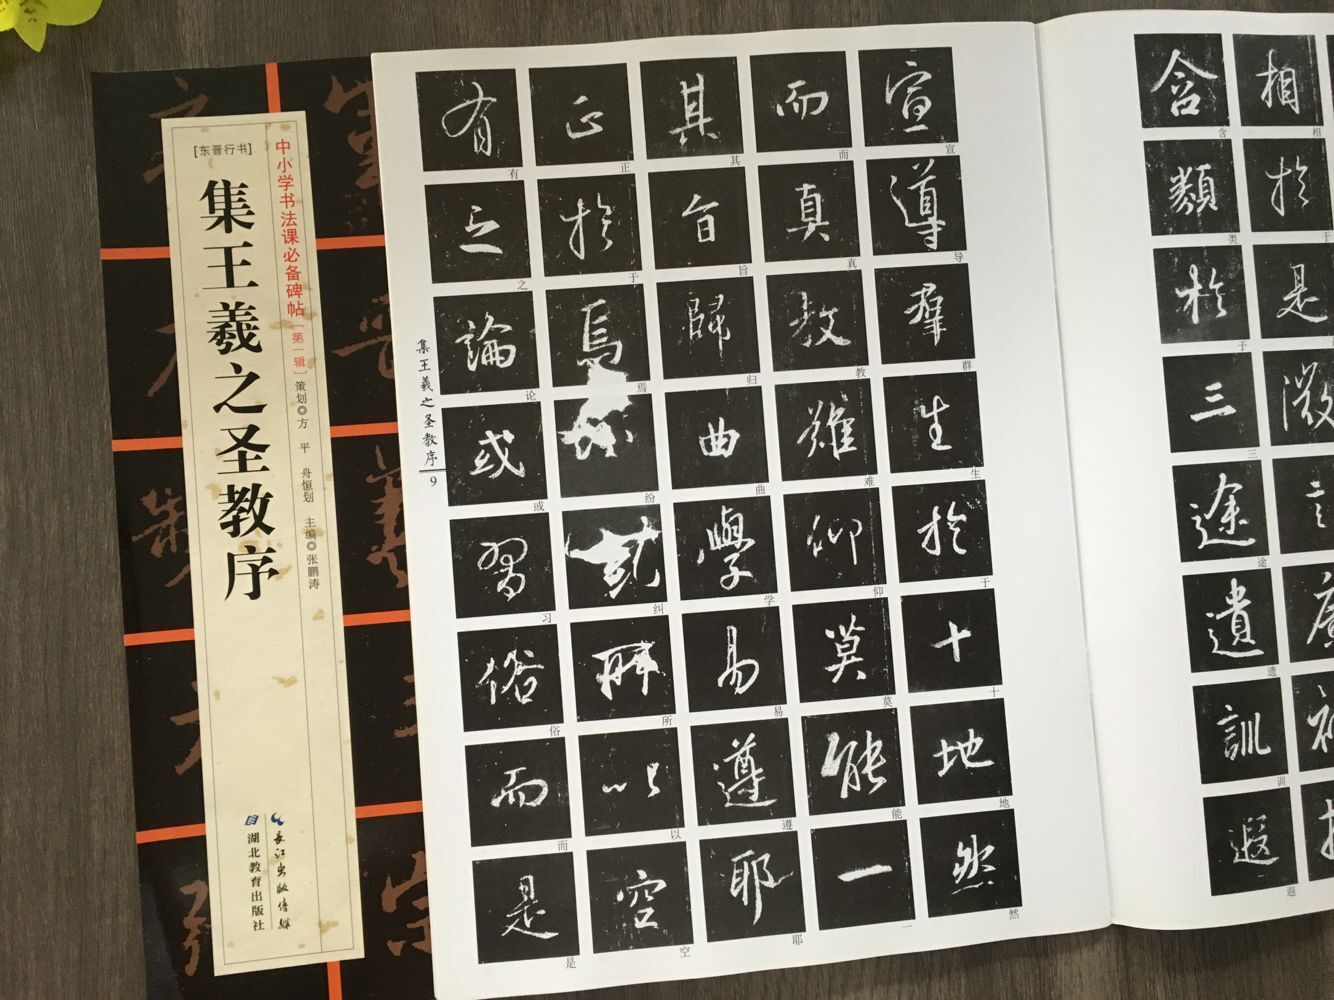 [东晋行书]
集王羲之圣教序
中小学书法课必备碑帖[第一辑]
策划◎方 平 舟恒划 主编◎张鹏涛
长江出版传媒
湖北教育出版社
集王羲之圣教序
9
宣導群生於十地然
宣导群生于十地然
而真教難仰莫能一
而真教难仰莫能一
其旨歸曲學易遵耶
其旨归曲学易遵耶
正於焉
所以空
正于焉纷纠所以空
有之論或習俗而是
有之论或习俗而是
相於是
相于
含類於三途遺訓遐
含类于三途遗训遐